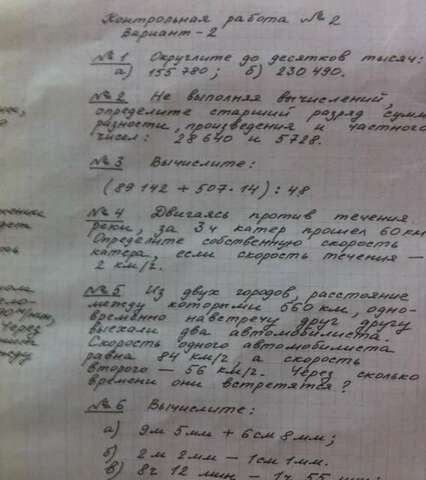 Контрольная работа № 2
Вариант - 2
№ 1 Округлите до десятков тысяч:
а) 155 780; б) 230 490.
№ 2 Не выполняя вычислений,
определите старший разряд сумм
разности, произведения и частного
чисел: 28 640 и 5728.
№ 3 Вычислите:
(89 142 + 507 · 14) : 48
№ 4 Двигаясь против течения
реки, за 3 ч катер прошел 60 км
Определите собственную скорость
катера, если скорость течения —
2 км/ч.
№ 5 Из двух городов, расстояние
между которыми 560 км, одно-
временно навстречу друг другу
выехали два автомобилиста.
Скорость одного автомобилиста
равна 84 км/ч, а скорость
второго — 56 км/ч. Через сколько
времени они встретятся?
№ 6 Вычислите:
а) 9м 5мм + 6см 8мм;
б) 2м 2мм — 1см 1мм.
в) 8ч 12 мин — 1ч 55 мин